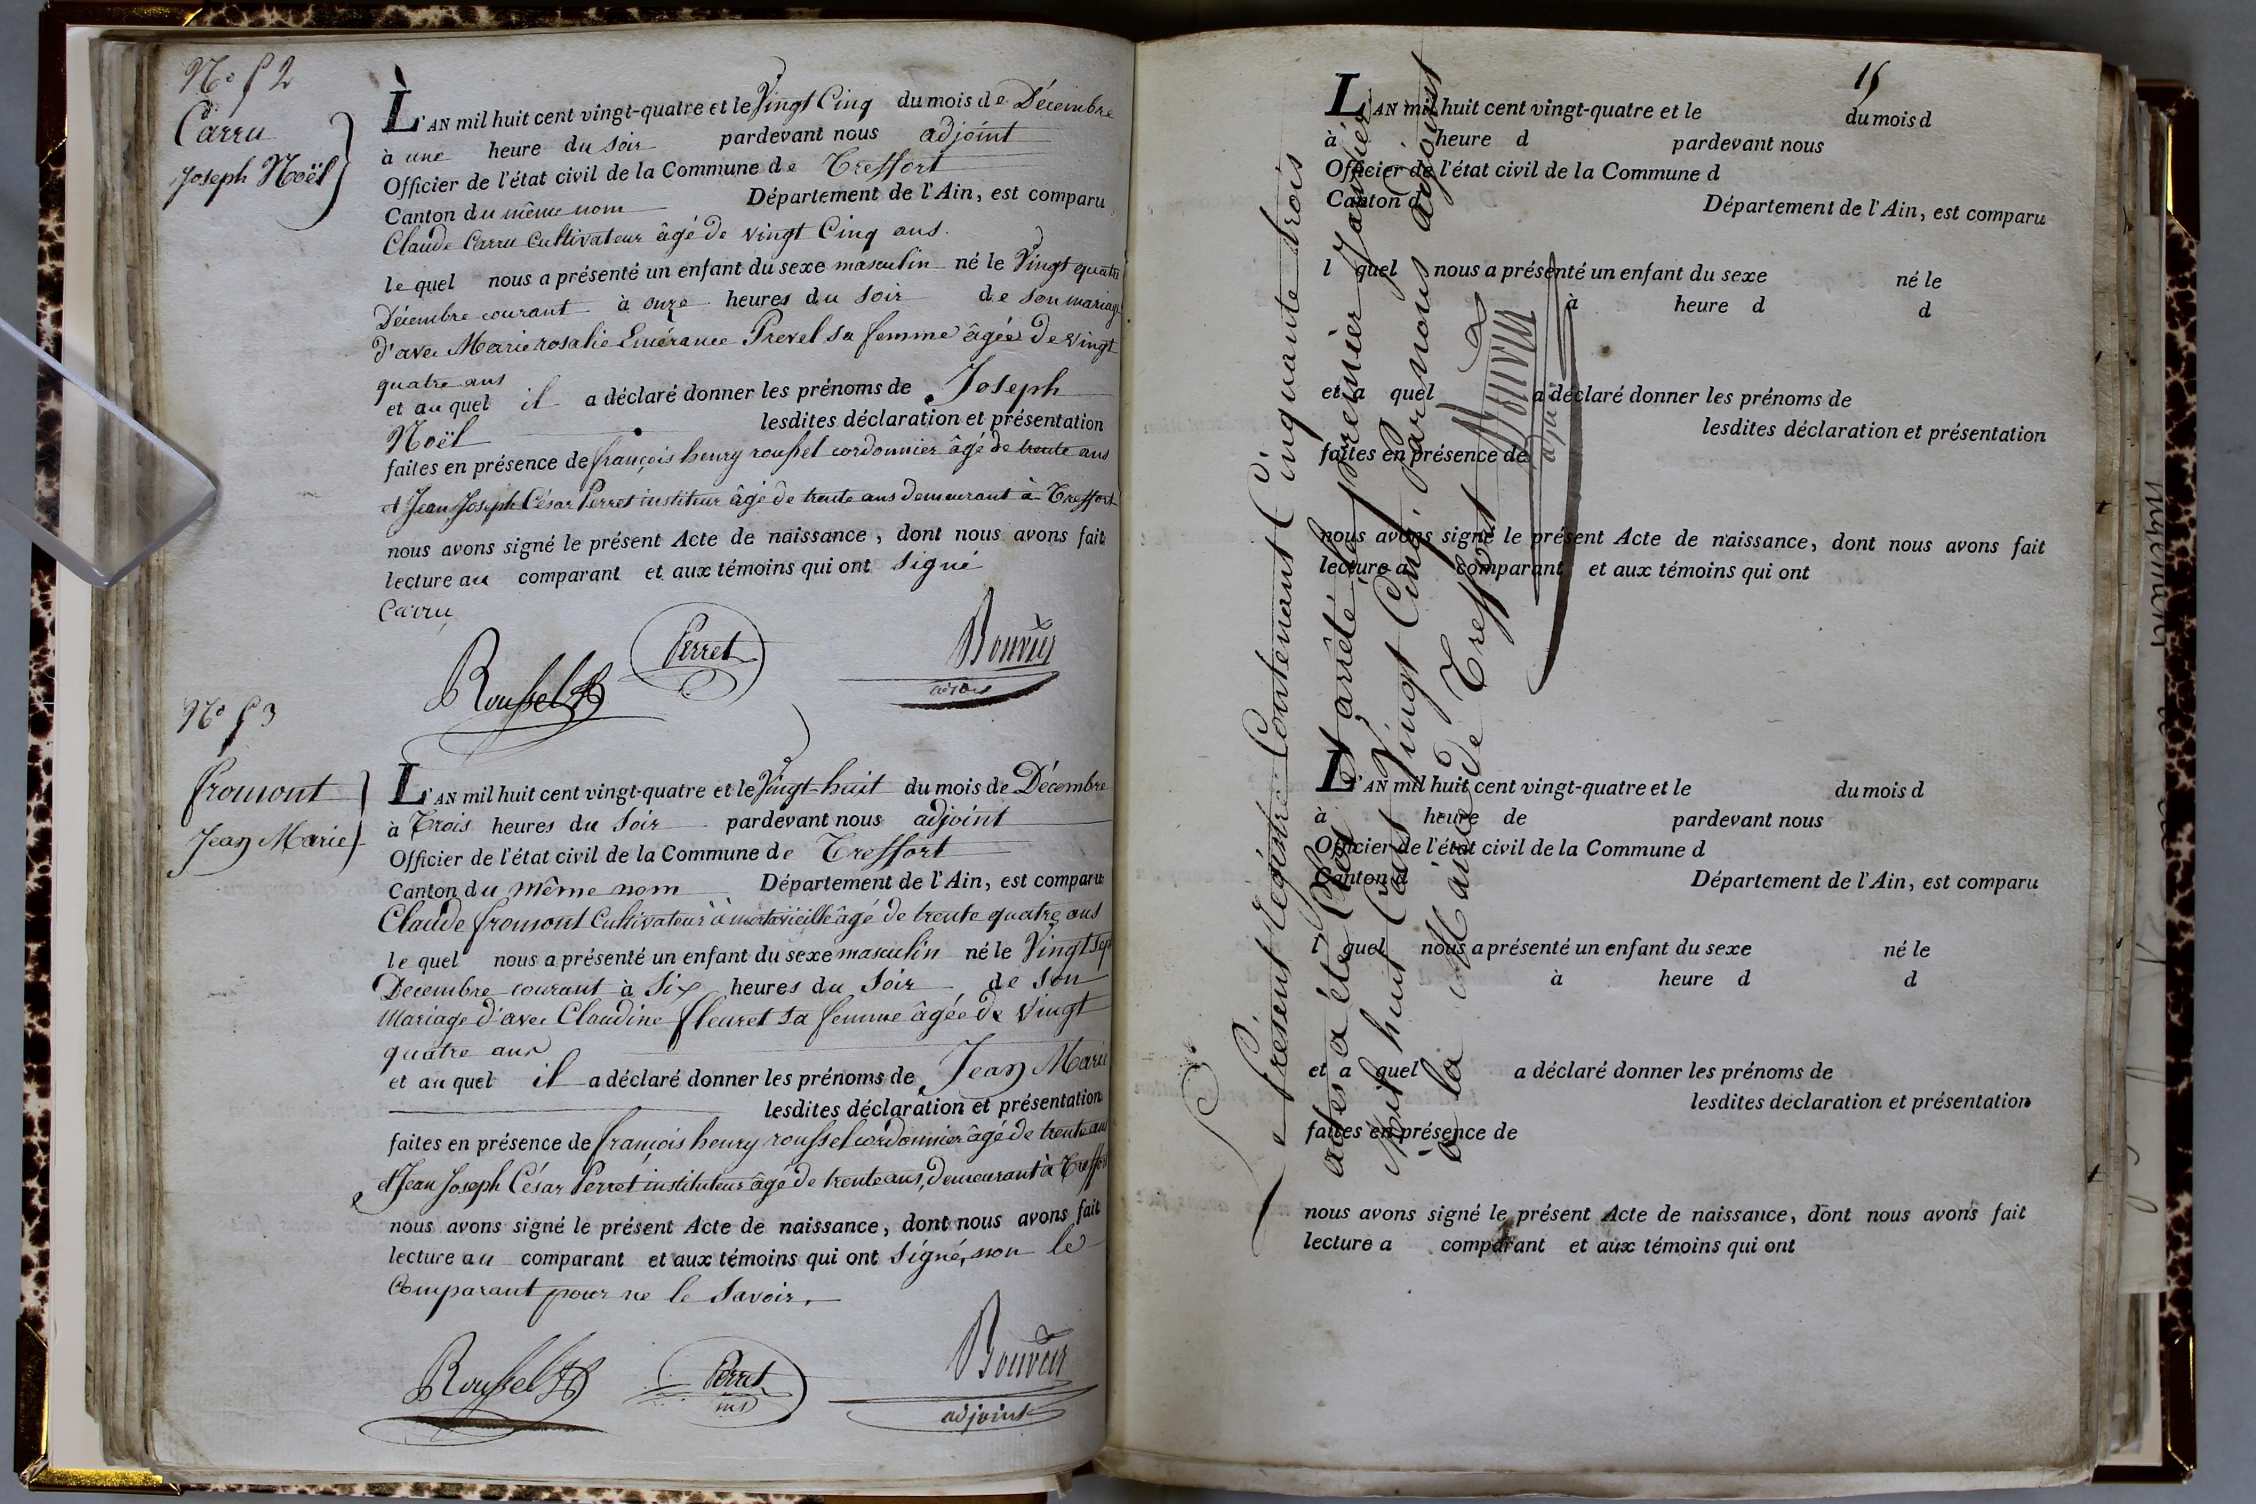 N.° 52
Carru
Joseph Noël
L'AN mil huit cent vingt-quatre et le Vingt Cinq du mois de Décembre
à une heure du soir pardevant nous adjoint
Officier de l'état civil de la Commune de Treffort
Canton du même nom Département de l'Ain, est comparu
Claude Carru Cultivateur âgé de vingt Cinq ans.
le quel nous a présenté un enfant du sexe masculin né le Vingt quatre
Décembre courant à onze heures du soir de son mariage
d'avec Marie rosalie Prevel sa femme âgée de vingt
quatre ans
et au quel il a déclaré donner les prénoms de Joseph
Noël lesdites déclaration et présentation
faites en présence de françois henry roussel cordonnier âgé de trente ans
et Jean Joseph César Perret institeur âgé de trente ans demeurant à Treffort
nous avons signé le présent Acte de naissance, dont nous avons fait
lecture au comparant et aux témoins qui ont signé
Carru
Roussel Perret Bouvier
adjoint
N.° 53
fromont
Jean Marie
L'AN mil huit cent vingt-quatre et le Vingt huit du mois de Décembre
à Trois heures du soir pardevant nous adjoint
Officier de l'état civil de la Commune de Treffort
Canton du même nom Département de l'Ain, est comparu
Claude fromont Cultivateur à âgé de trente quatre ans
le quel nous a présenté un enfant du sexe masculin né le Vingt sept
Decembre courant à Six heures du soir de son
Mariage d'avec Claudine fleuret sa femme âgée de vingt
quatre ans
et au quel il a déclaré donner les prénoms de Jean Marie
lesdites déclaration et présentation
faites en présence de françois henry roussel cordonnier âgé de trente ans
et Jean Joseph César Perret instituteur âgé de trente ans, demeurant à Treffort
nous avons signé le présent Acte de naissance, dont nous avons fait
lecture au comparant et aux témoins qui ont signé, non le
Comparant pour ne le savoir.
Roussel Perret Bouvier
ins adjoint
15
L'AN mil huit cent vingt-quatre et le du mois d
à heure d pardevant nous
Officier de l'état civil de la Commune d
Canton d Département de l'Ain, est comparu
l quel nous a présenté un enfant du sexe né le
à heure d d
et a quel a déclaré donner les prénoms de
lesdites déclaration et présentation
faites en présence de
nous avons signé le présent Acte de naissance, dont nous avons fait
lecture a comparant et aux témoins qui ont
L'AN mil huit cent vingt-quatre et le du mois d
à heure de pardevant nous
Officier de l'état civil de la Commune d
Canton d Département de l'Ain, est comparu
l quel nous a présenté un enfant du sexe né le
à heure d d
et a quel a déclaré donner les prénoms de
lesdites déclaration et présentation
faites en présence de
nous avons signé le présent Acte de naissance, dont nous avons fait
lecture a comparant et aux témoins qui ont
Le présent Régistre Contenant Cinquante trois
actes a été Clos et arrêté le premier Janvier
Mil huit Cent Vingt Cinq, par nous adjoint
à la Mairie de Treffort
Bouvier
adj